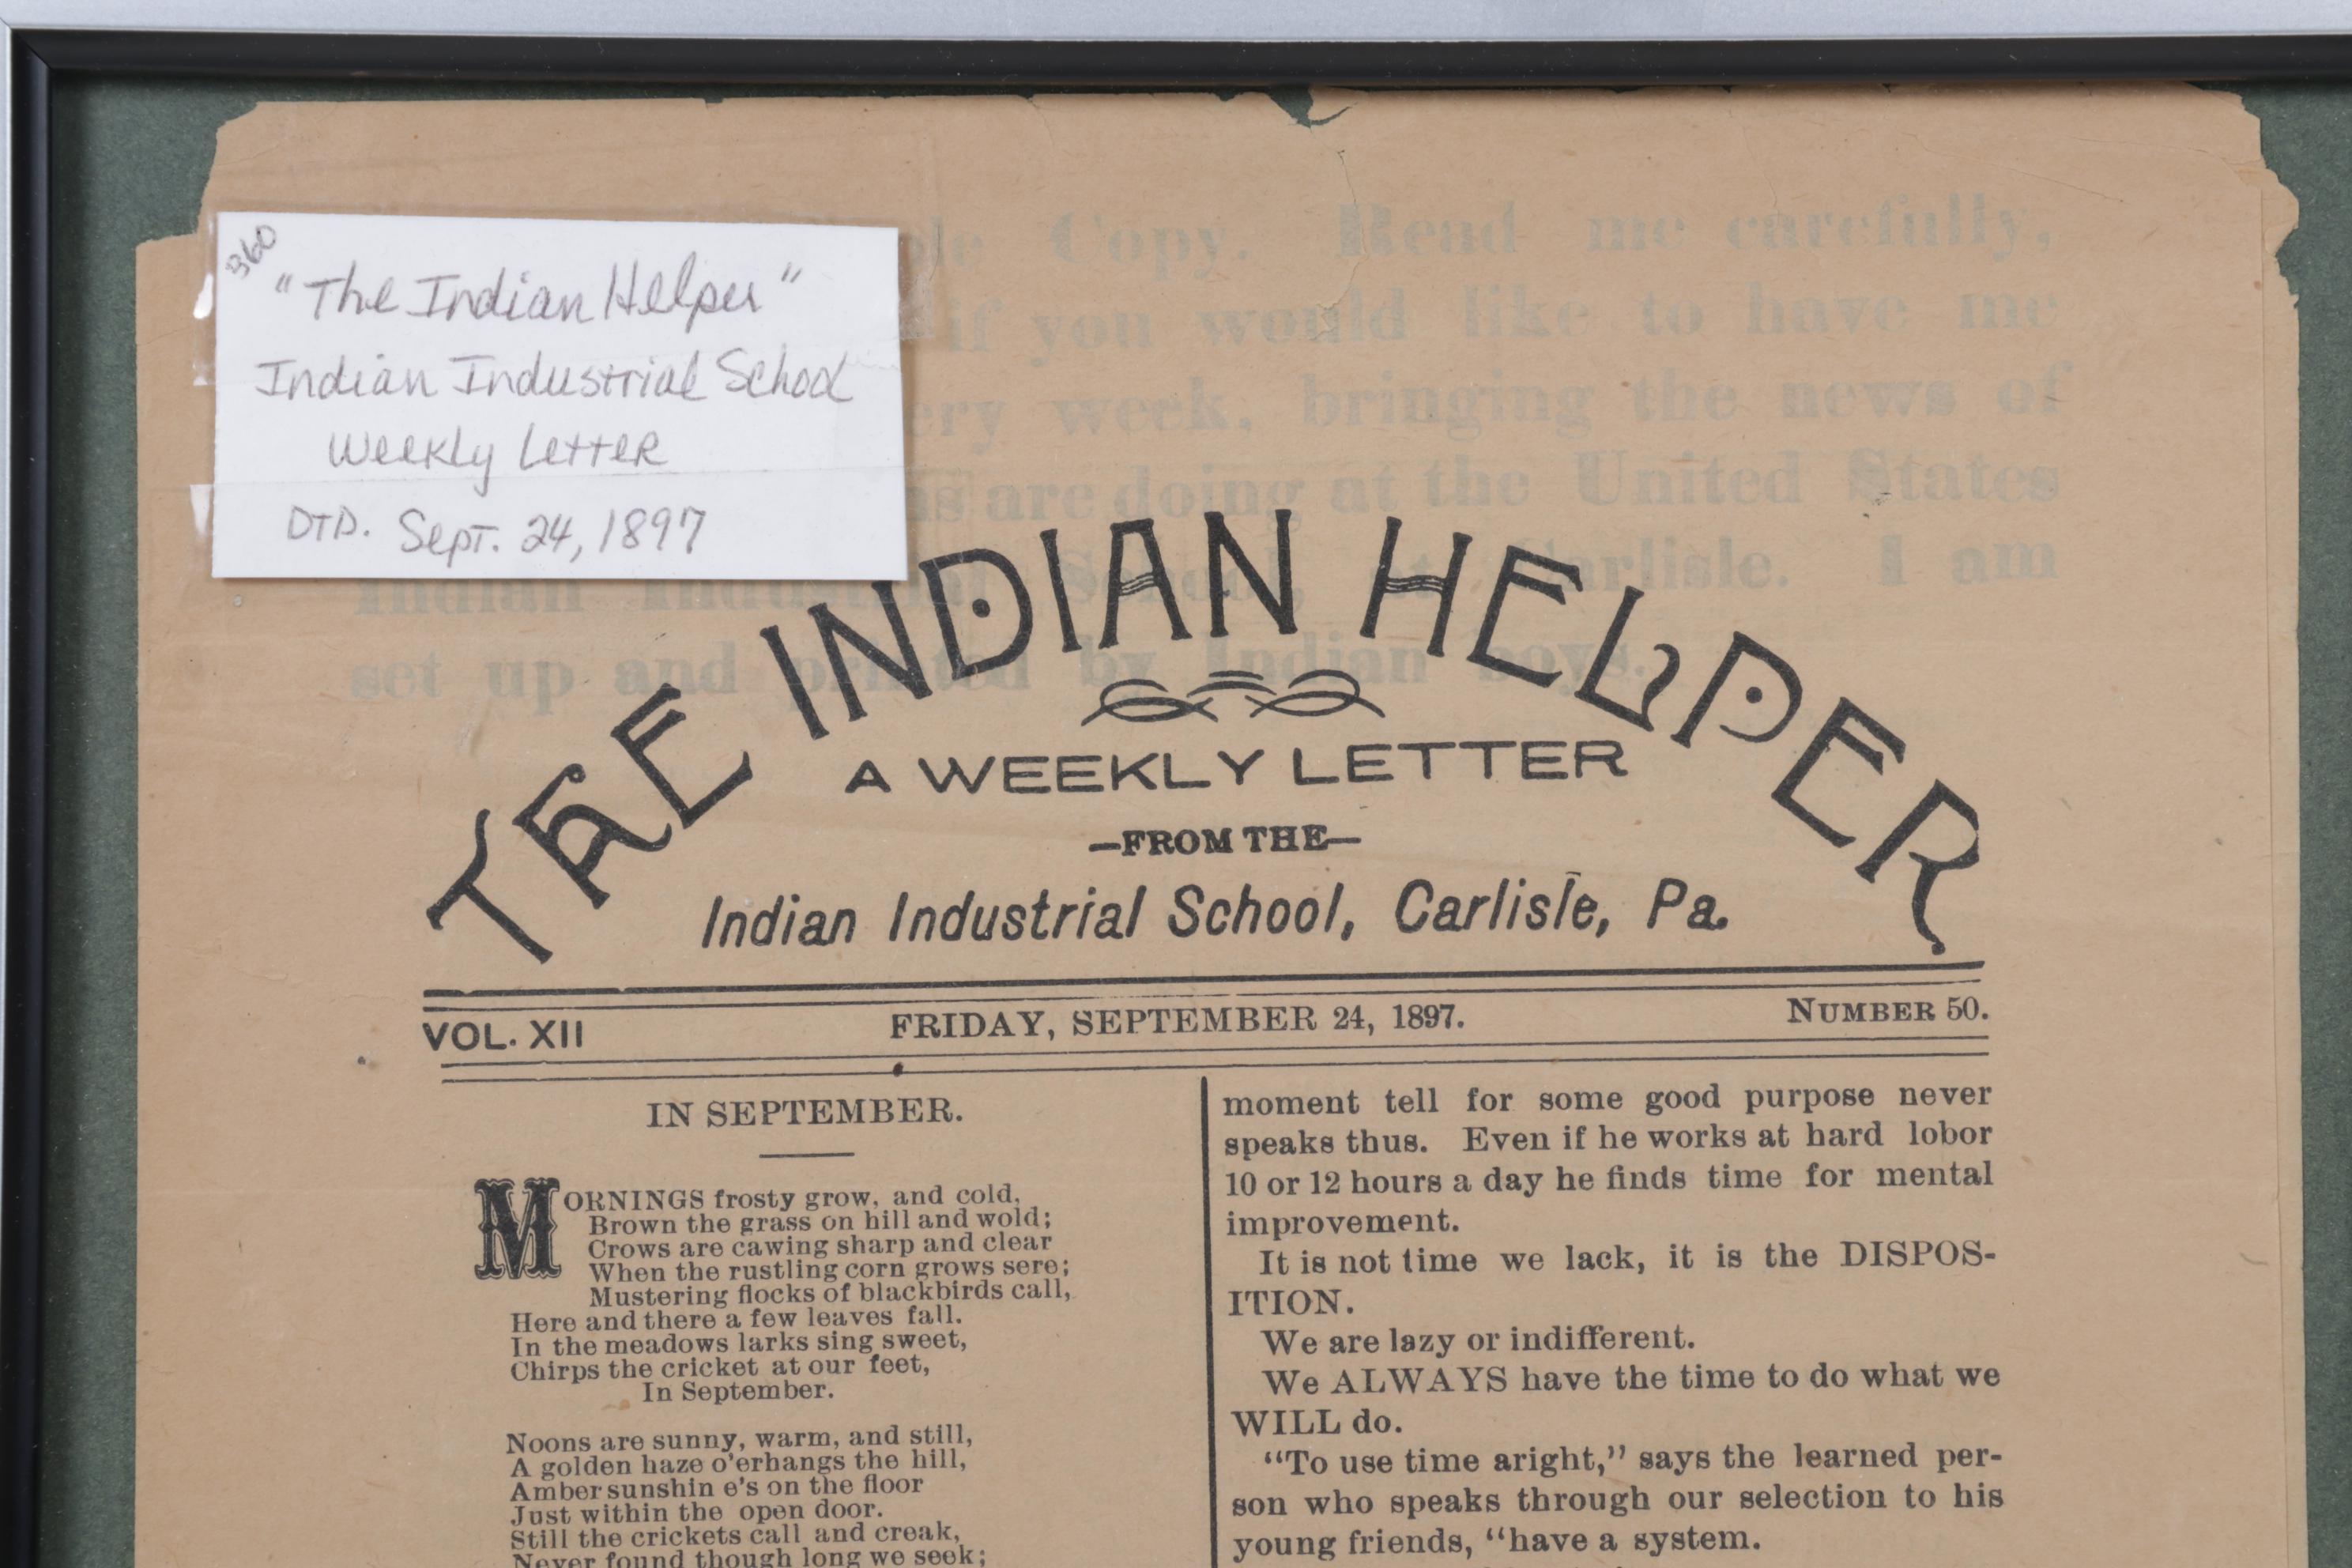 360
"The Indian Helper"
Indian Industrial School
Weekly Letter
DTD. Sept. 24, 1897
Copy. Read me carefully,
if you would like to have me
week, bringing the news of
are doing at the United States
Indian Industrial School, at Carlisle. I am
set up and printed by Indian boys.
THE INDIAN HELPER
A WEEKLY LETTER
—FROM THE—
Indian Industrial School, Carlisle, Pa.
VOL. XII FRIDAY, SEPTEMBER 24, 1897. NUMBER 50.
IN SEPTEMBER.
MORNINGS frosty grow, and cold,
Brown the grass on hill and wold;
Crows are cawing sharp and clear
When the rustling corn grows sere;
Mustering flocks of blackbirds call,
Here and there a few leaves fall.
In the meadows larks sing sweet,
Chirps the cricket at our feet,
In September.
Noons are sunny, warm, and still,
A golden haze o'erhangs the hill,
Amber sunshin e's on the floor
Just within the open door.
Still the crickets call and creak,
Never found though long we seek;
moment tell for some good purpose never
speaks thus. Even if he works at hard lobor
10 or 12 hours a day he finds time for mental
improvement.
It is not time we lack, it is the DISPOS-
ITION.
We are lazy or indifferent.
We ALWAYS have the time to do what we
WILL do.
"To use time aright," says the learned per-
son who speaks through our selection to his
young friends, "have a system.